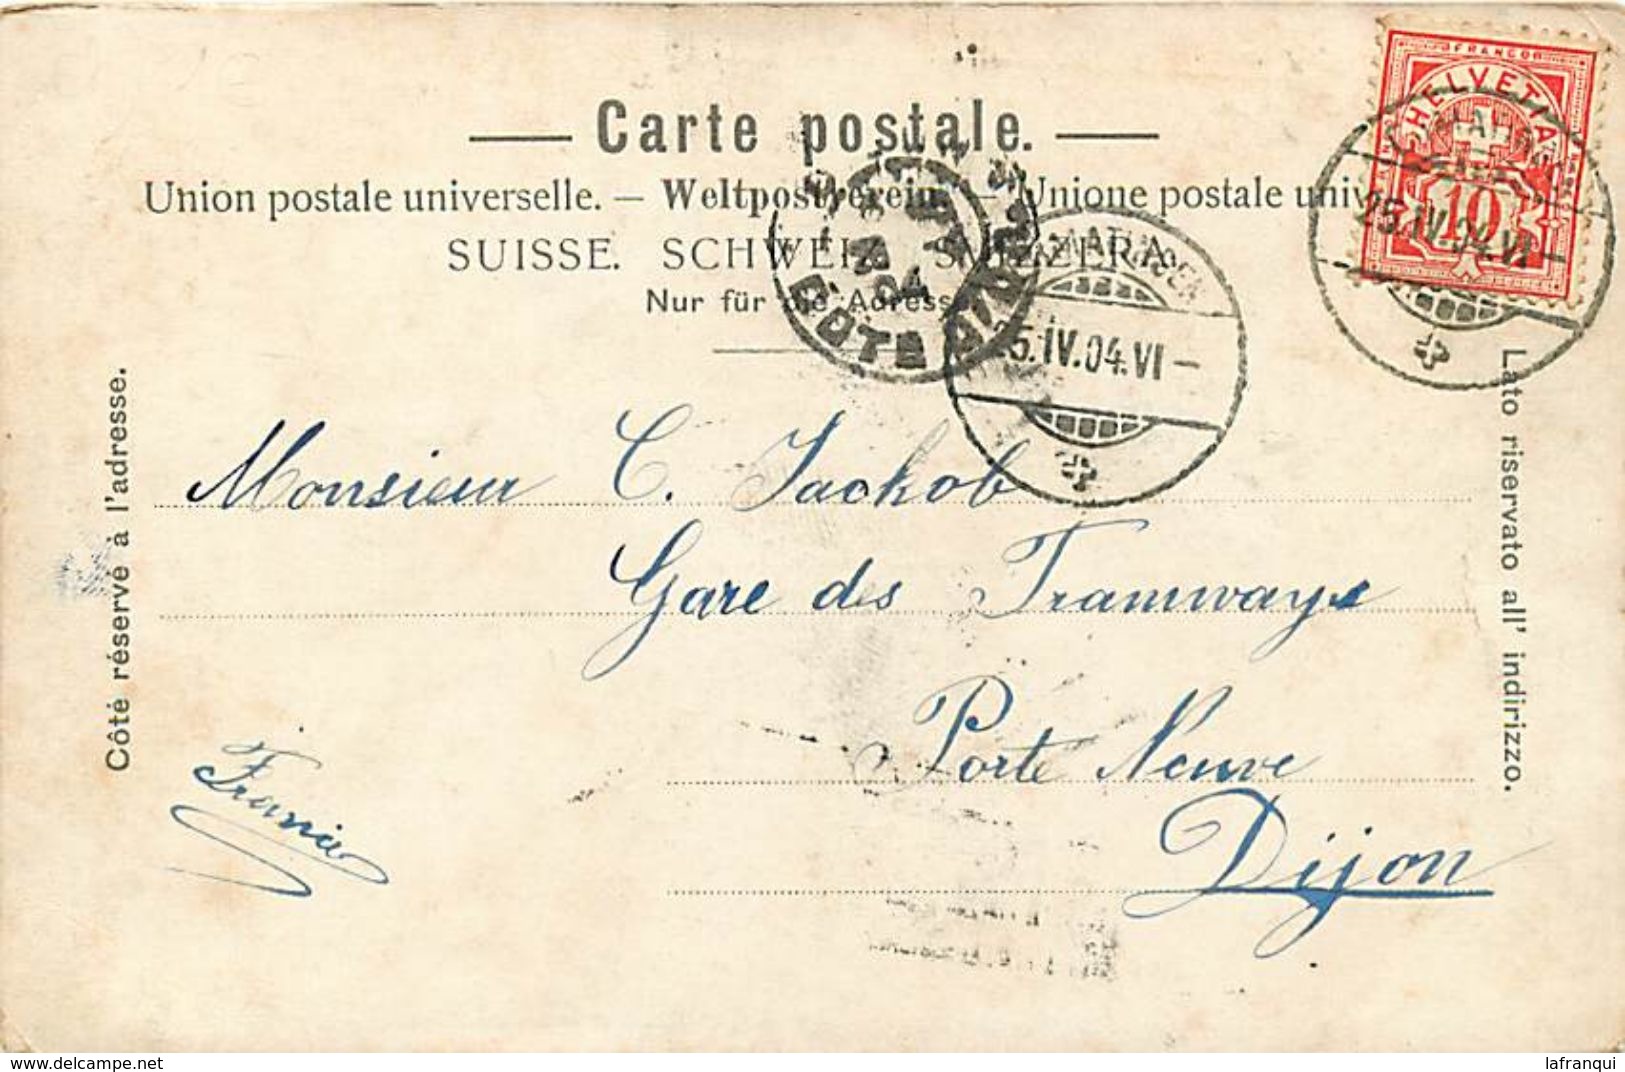 Carte postale.
Union postale universelle. — Weltpostverein. — Unione postale univ
SUISSE. SCHWEIZ. SVIZZERA.
Nur für die Adresse
FRANCO
HELVETIA
10
25.IV.04.VI–
5.IV.04.VI–
COTE
Côté réservé à l'adresse.
Lato riservato all' indirizzo.
Monsieur C. Jackob
Gare des Tramways
Porte Neuve
Dijon
France
delcampe.net
lafranqui